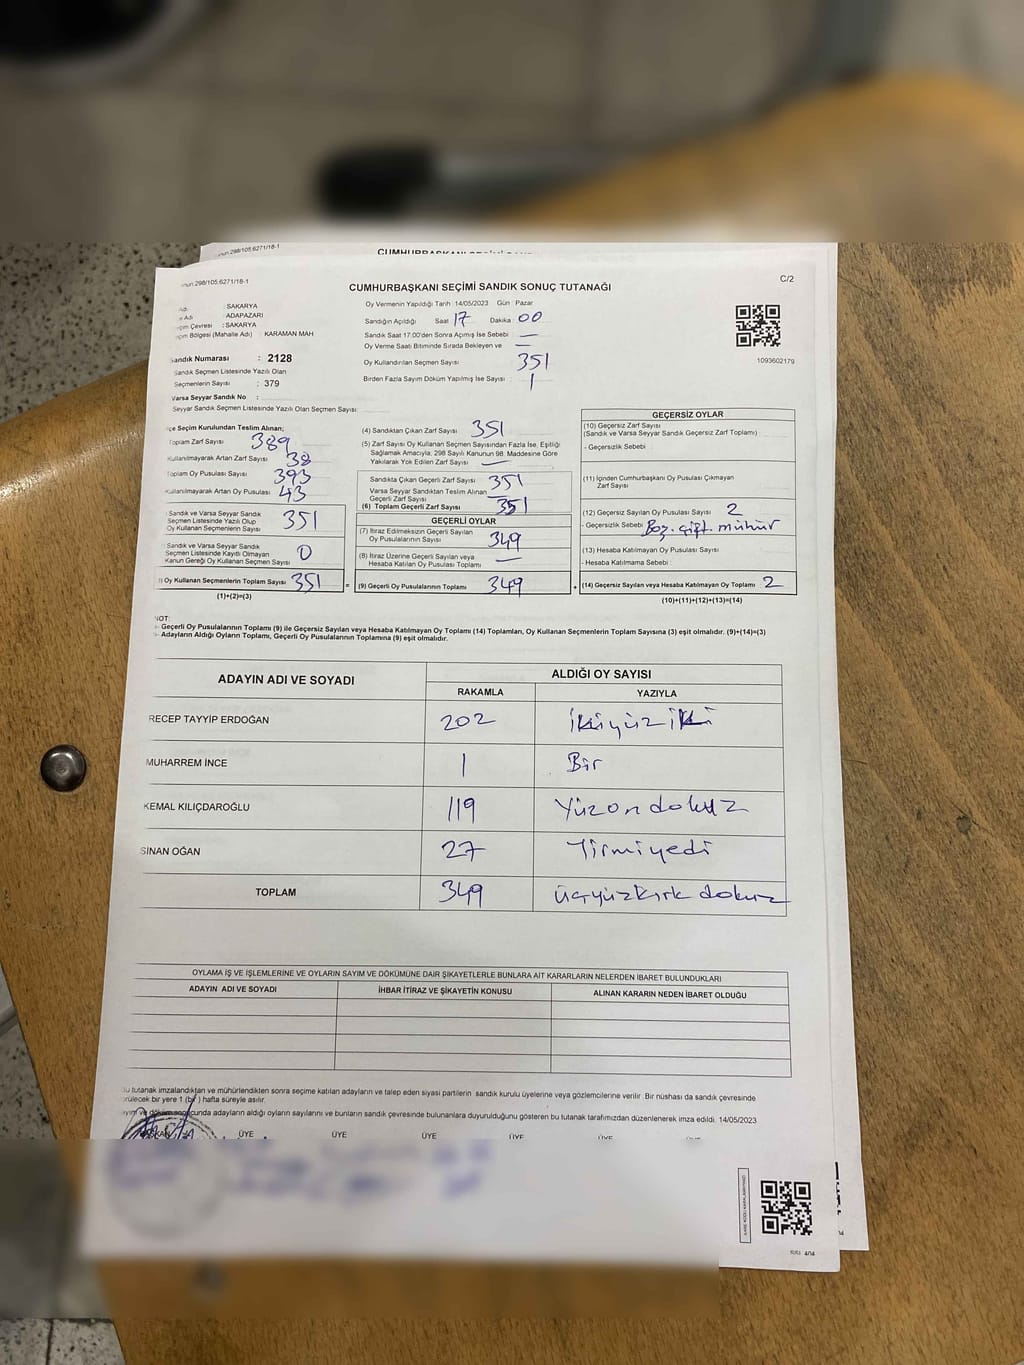 CUMHURBAŞKANI SEÇİMİ SANDIK SONUÇ TUTANAĞI
C/2
298/105,6271/18-1
: SAKARYA
: ADAPAZARI
: SAKARYA
(Mahalle Adı) : KARAMAN MAH
Sandık Numarası : 2128
Sandık Seçmen Listesinde Yazılı Olan
Seçmenlerin Sayısı : 379
Varsa Seyyar Sandık No :
Seyyar Sandık Seçmen Listesinde Yazılı Olan Seçmen Sayısı:
Oy Vermenin Yapıldığı Tarih 14/05/2023 Gün : Pazar
Sandığın Açıldığı Saat 17 Dakika 00
Sandık Saat 17:00'den Sonra Açımış İse Sebebi —
Oy Verme Saati Bitiminde Sırada Bekleyen ve —
Oy Kullandırılan Seçmen Sayısı 351
Birden Fazla Sayım Döküm Yapılmış İse Sayısı 1
1093602179
Seçim Kurulundan Teslim Alınan;
Toplam Zarf Sayısı 389
Kullanılmayarak Artan Zarf Sayısı 38
Toplam Oy Pusulası Sayısı 393
Kullanılmayarak Artan Oy Pusulası 43
Sandık ve Varsa Seyyar Sandık
Seçmen Listesinde Yazılı Olup
Oy Kullanan Seçmenlerin Sayısı 351
Sandık ve Varsa Seyyar Sandık
Seçmen Listesinde Kayıtlı Olmayan
Kanun Gereği Oy Kullanan Seçmen Sayısı 0
Oy Kullanan Seçmenlerin Toplam Sayısı 351 =
(1)+(2)=(3)
(4) Sandıktan Çıkan Zarf Sayısı 351
(5) Zarf Sayısı Oy Kullanan Seçmen Sayısından Fazla İse, Eşitliği
Sağlamak Amacıyla; 298 Sayılı Kanunun 98. Maddesine Göre
Yakılarak Yok Edilen Zarf Sayısı —
Sandıkta Çıkan Geçerli Zarf Sayısı 351
Varsa Seyyar Sandıktan Teslim Alınan
Geçerli Zarf Sayısı —
(6) Toplam Geçerli Zarf Sayısı 351
GEÇERLİ OYLAR
(7) İtiraz Edilmeksizin Geçerli Sayılan
Oy Pusulalarının Sayısı 349
(8) İtiraz Üzerine Geçerli Sayılan veya
Hesaba Katılan Oy Pusulası Toplamı —
(9) Geçerli Oy Pusulalarının Toplamı 349 +
GEÇERSİZ OYLAR
(10) Geçersiz Zarf Sayısı
(Sandık ve Varsa Seyyar Sandık Geçersiz Zarf Toplamı)
- Geçersizlik Sebebi :
(11) İçinden Cumhurbaşkanı Oy Pusulası Çıkmayan
Zarf Sayısı
(12) Geçersiz Sayılan Oy Pusulası Sayısı 2
- Geçersizlik Sebebi çift. mühür
(13) Hesaba Katılmayan Oy Pusulası Sayısı
- Hesaba Katılmama Sebebi :
(14) Geçersiz Sayılan veya Hesaba Katılmayan Oy Toplamı 2
(10)+(11)+(12)+(13)=(14)
NOT:
- Geçerli Oy Pusulalarının Toplamı (9) ile Geçersiz Sayılan veya Hesaba Katılmayan Oy Toplamı (14) Toplamları, Oy Kullanan Seçmenlerin Toplam Sayısına (3) eşit olmalıdır. (9)+(14)=(3)
- Adayların Aldığı Oyların Toplamı, Geçerli Oy Pusulalarının Toplamına (9) eşit olmalıdır.
ADAYIN ADI VE SOYADI
ALDIĞI OY SAYISI
RAKAMLA YAZIYLA
RECEP TAYYİP ERDOĞAN 202 ikiyüziki
MUHARREM İNCE 1 Bir
KEMAL KILIÇDAROĞLU 119 Yüzondokuz
SİNAN OĞAN 27 Yirmiyedi
TOPLAM 349 üçyüzkırk dokuz
OYLAMA İŞ VE İŞLEMLERİNE VE OYLARIN SAYIM VE DÖKÜMÜNE DAİR ŞİKAYETLERLE BUNLARA AİT KARARLARIN NELERDEN İBARET BULUNDUKLARI
ADAYIN ADI VE SOYADI İHBAR İTİRAZ VE ŞİKAYETİN KONUSU ALINAN KARARIN NEDEN İBARET OLDUĞU
tutanak imzalandıktan ve mühürlendikten sonra seçime katılan adayların ve talep eden siyasi partilerin sandık kurulu üyelerine veya gözlemcilerine verilir. Bir nüshası da sandık çevresinde
bir yere 1 (bir) hafta süreyle asılır.
ve döküm sonucunda adayların aldığı oyların sayılarını ve bunların sandık çevresinde bulunanlara duyurulduğunu gösteren bu tutanak tarafımızdan düzenlenerek imza edildi. 14/05/2023
ÜYE ÜYE ÜYE ÜYE